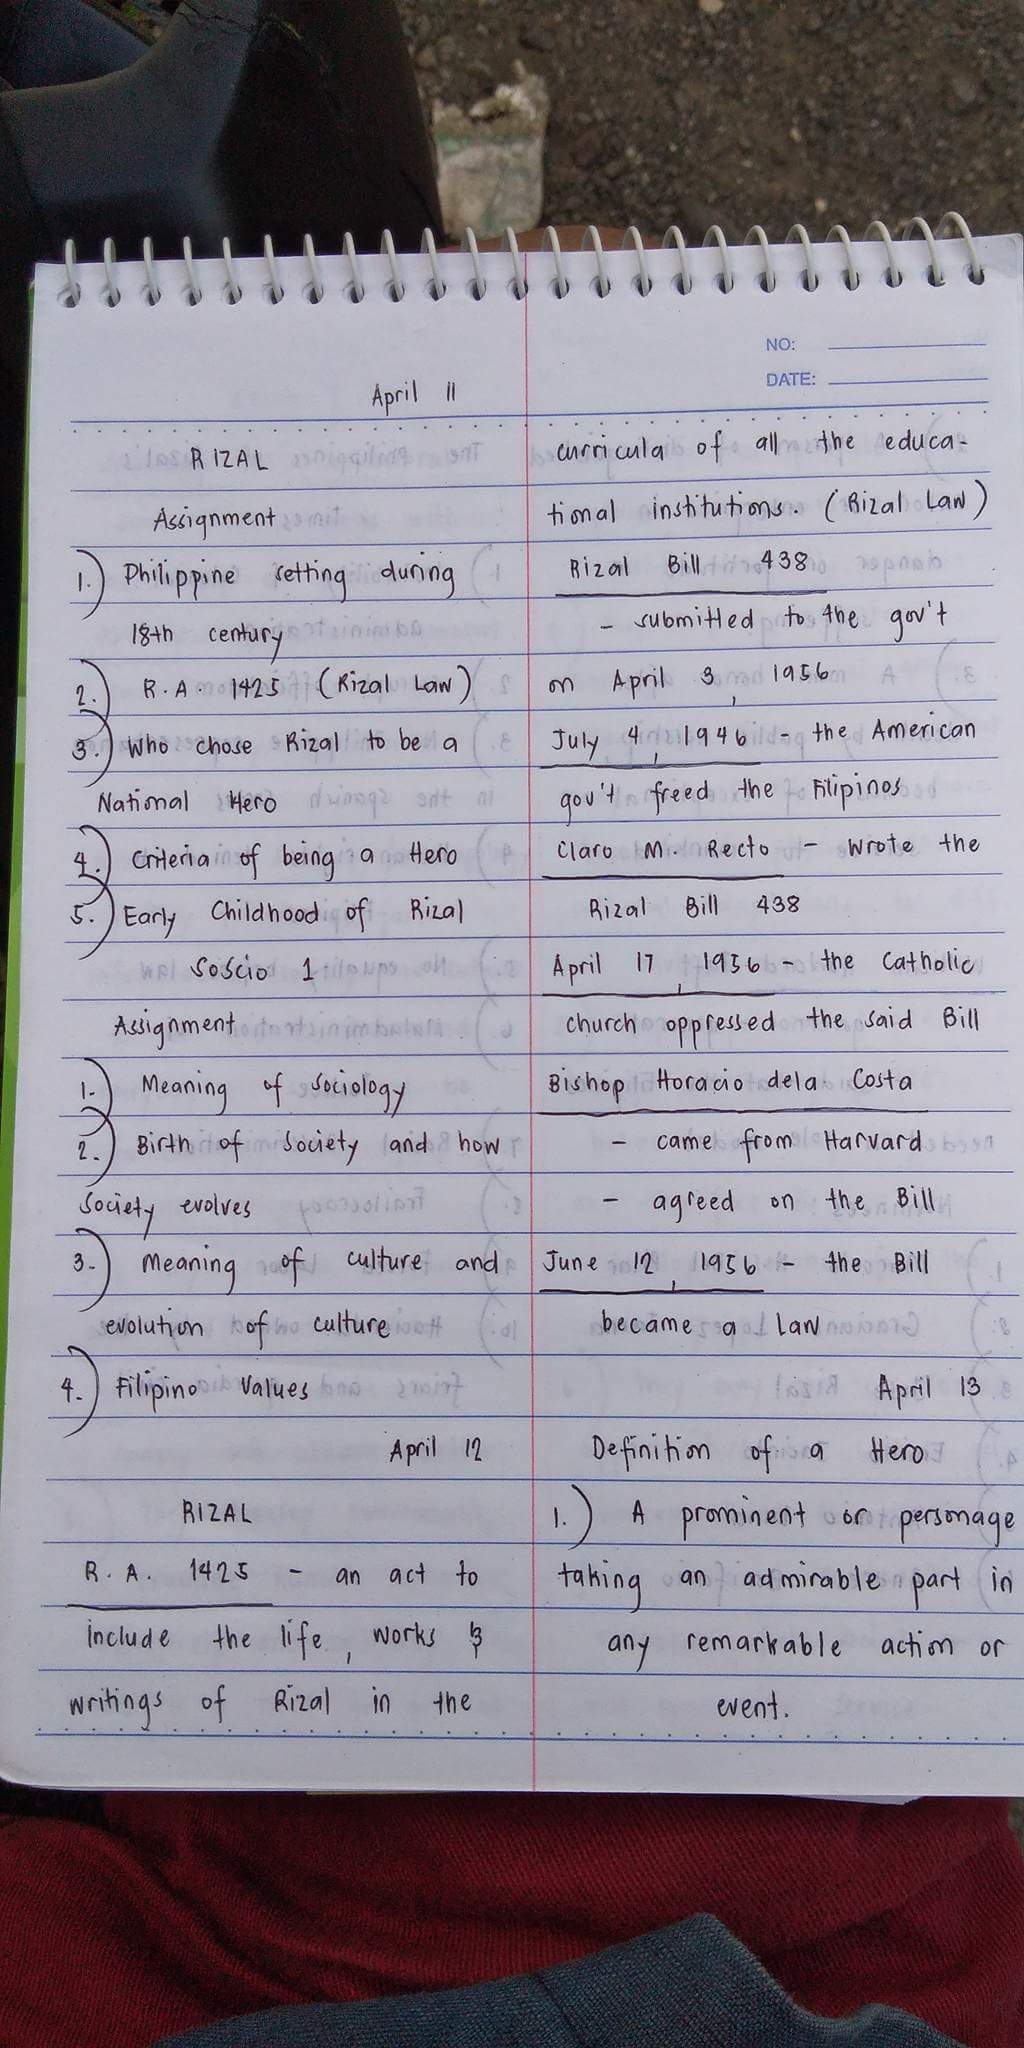 NO:
DATE:
April 11
RIZAL
Assignment
1.) Philippine setting during
18th century
2.) R.A. 1425 (Rizal Law)
3.) Who chose Rizal to be a
National Hero
4.) Criteria of being a Hero
5.) Early Childhood of Rizal
Soscio 1
Assignment
1.) Meaning of Sociology
2.) Birth of Society and how
Society evolves
3.) Meaning of culture and
evolution of culture
4.) Filipino Values
April 12
RIZAL
R.A. 1425 - an act to
include the life, works &
writings of Rizal in the
curricula of all the educa-
tional institutions. (Rizal Law)
Rizal Bill 438
- submitted to the gov't
on April 3, 1956
July 4, 1946 - the American
gov't freed the Filipinos
Claro M. Recto - wrote the
Rizal Bill 438
April 17, 1956 - the Catholic
church oppressed the said Bill
Bishop Horacio dela Costa
- came from Harvard
- agreed on the Bill
June 12, 1956 - the Bill
became a Law
April 13
Definition of a Hero
1.) A prominent or personage
taking an admirable part in
any remarkable action or
event.